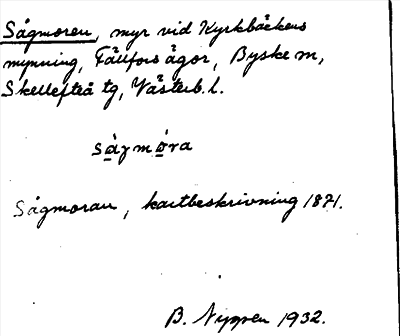 Sågmoren, myr vid Kyrkbäckens
mynning, Fällfors ägor, Byske m,
Skellefteå tg, Västerb. l.
sågmóra
Sågmoran, kartbeskrivning 1871.
B. Nyppen 1932.